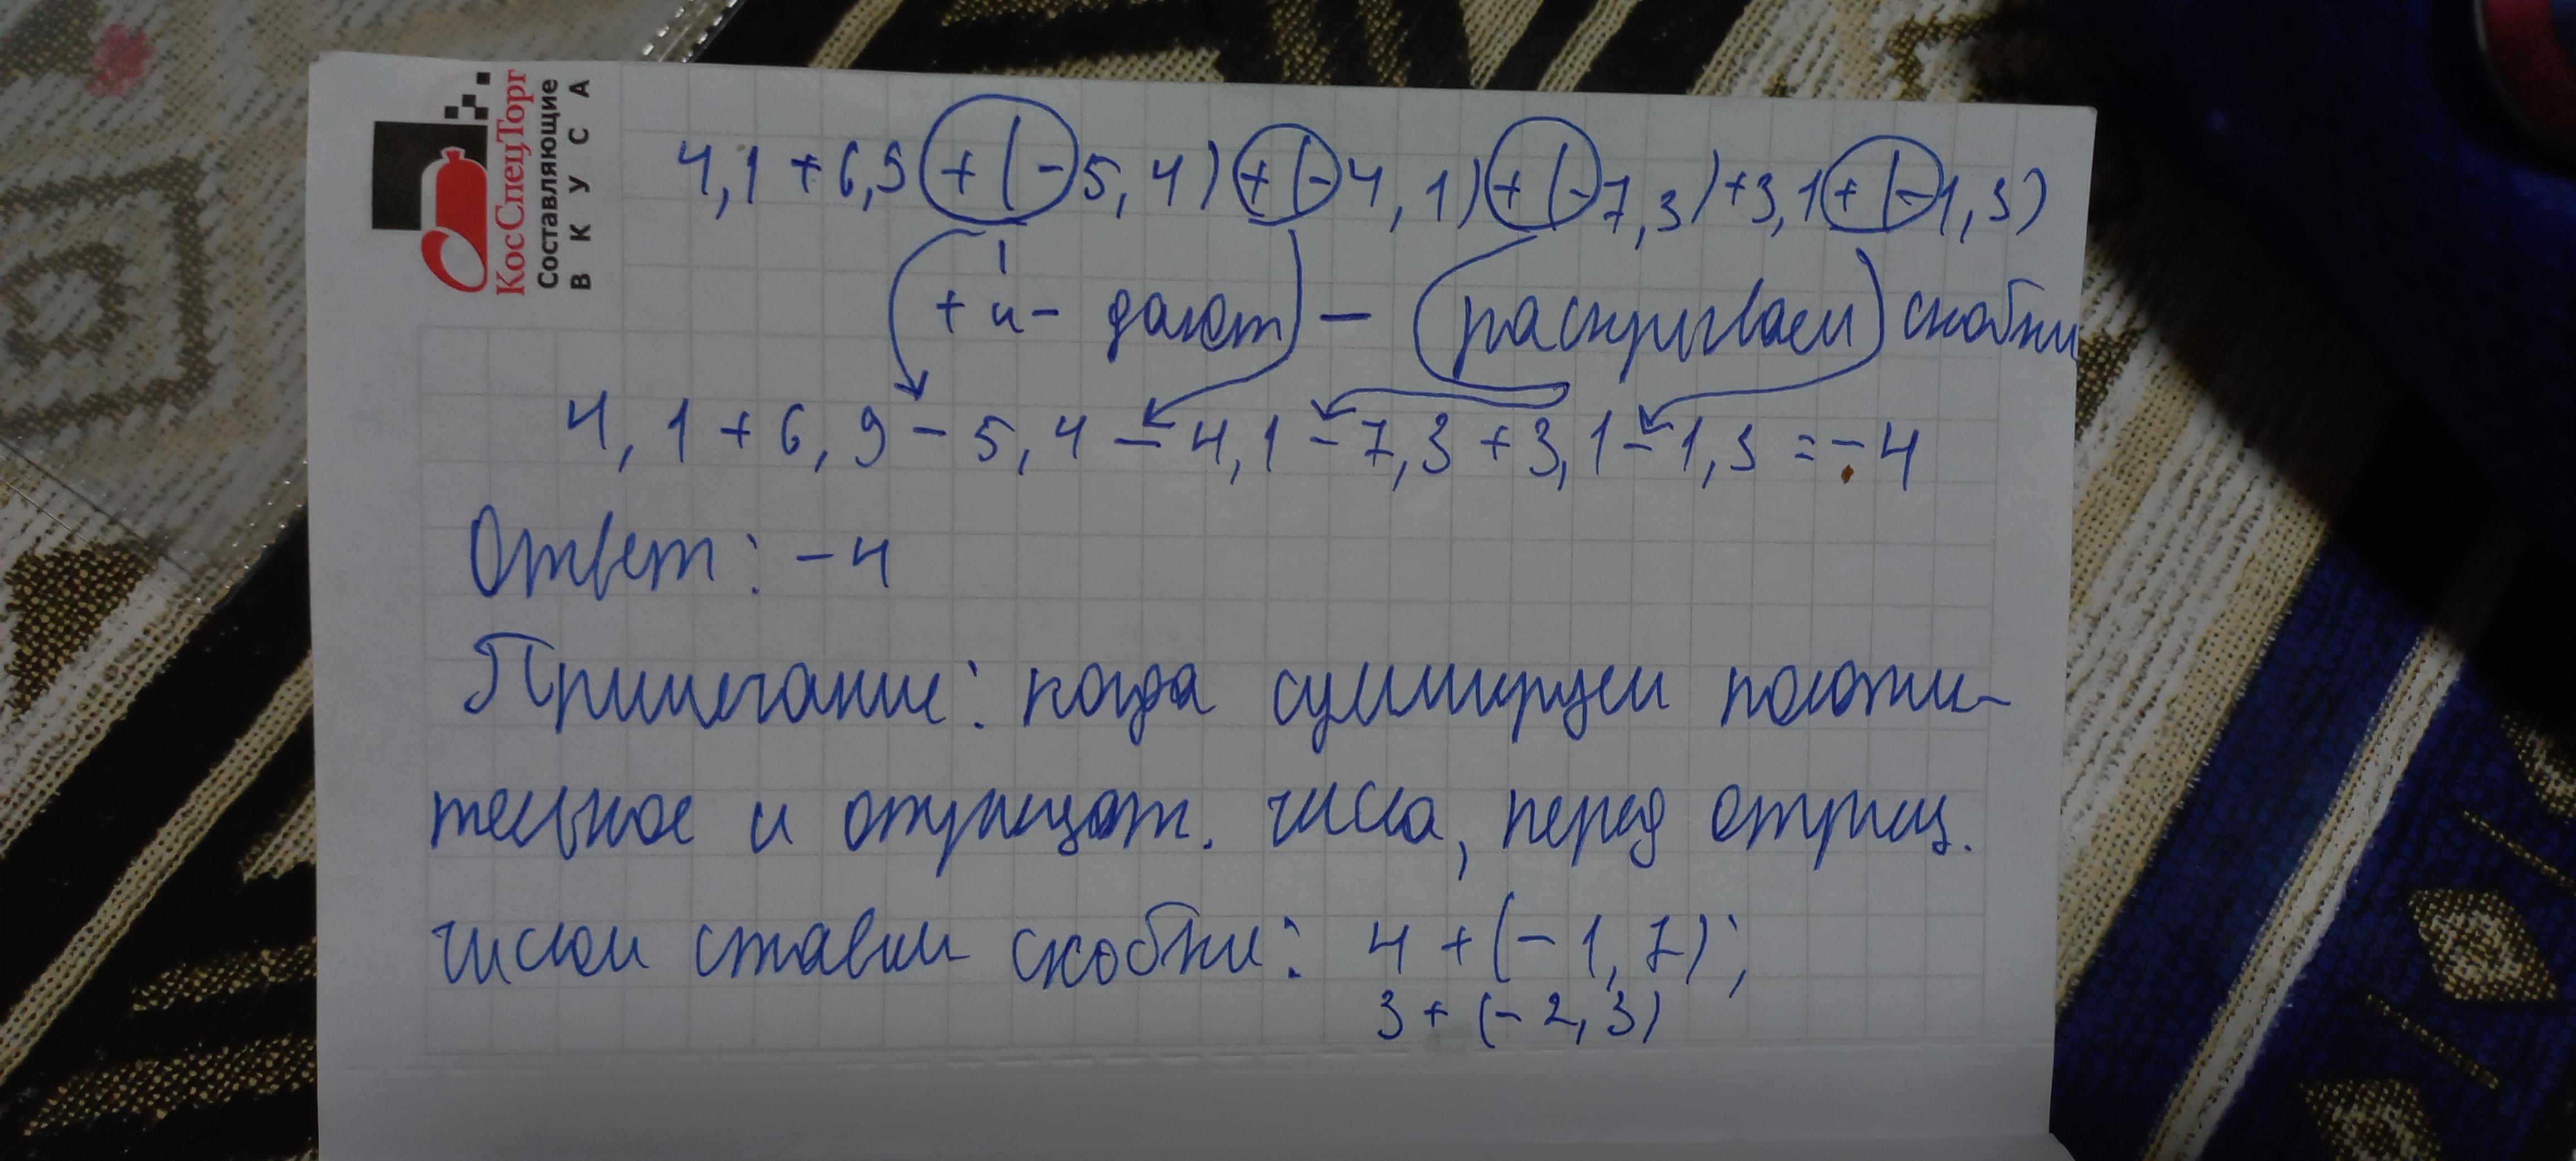 КосСпецТорг
Составляющие
ВКУСА
4,1 + 6,9 + (-5,4) + (-4,1) + (-7,3) + 3,1 + (-1,3)
+ и - дают - раскрываем скобки
4,1 + 6,9 - 5,4 - 4,1 - 7,3 + 3,1 - 1,3 = -4
Ответ: -4
Примечание: когда суммируем положи-
тельное и отрицат. числа, перед отриц.
числом ставим скобки: 4 + (-1,7);
3 + (-2,3)